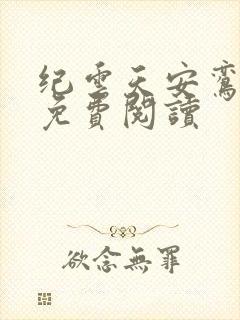 纪云天安鸾
免費閱讀
欲念無罪